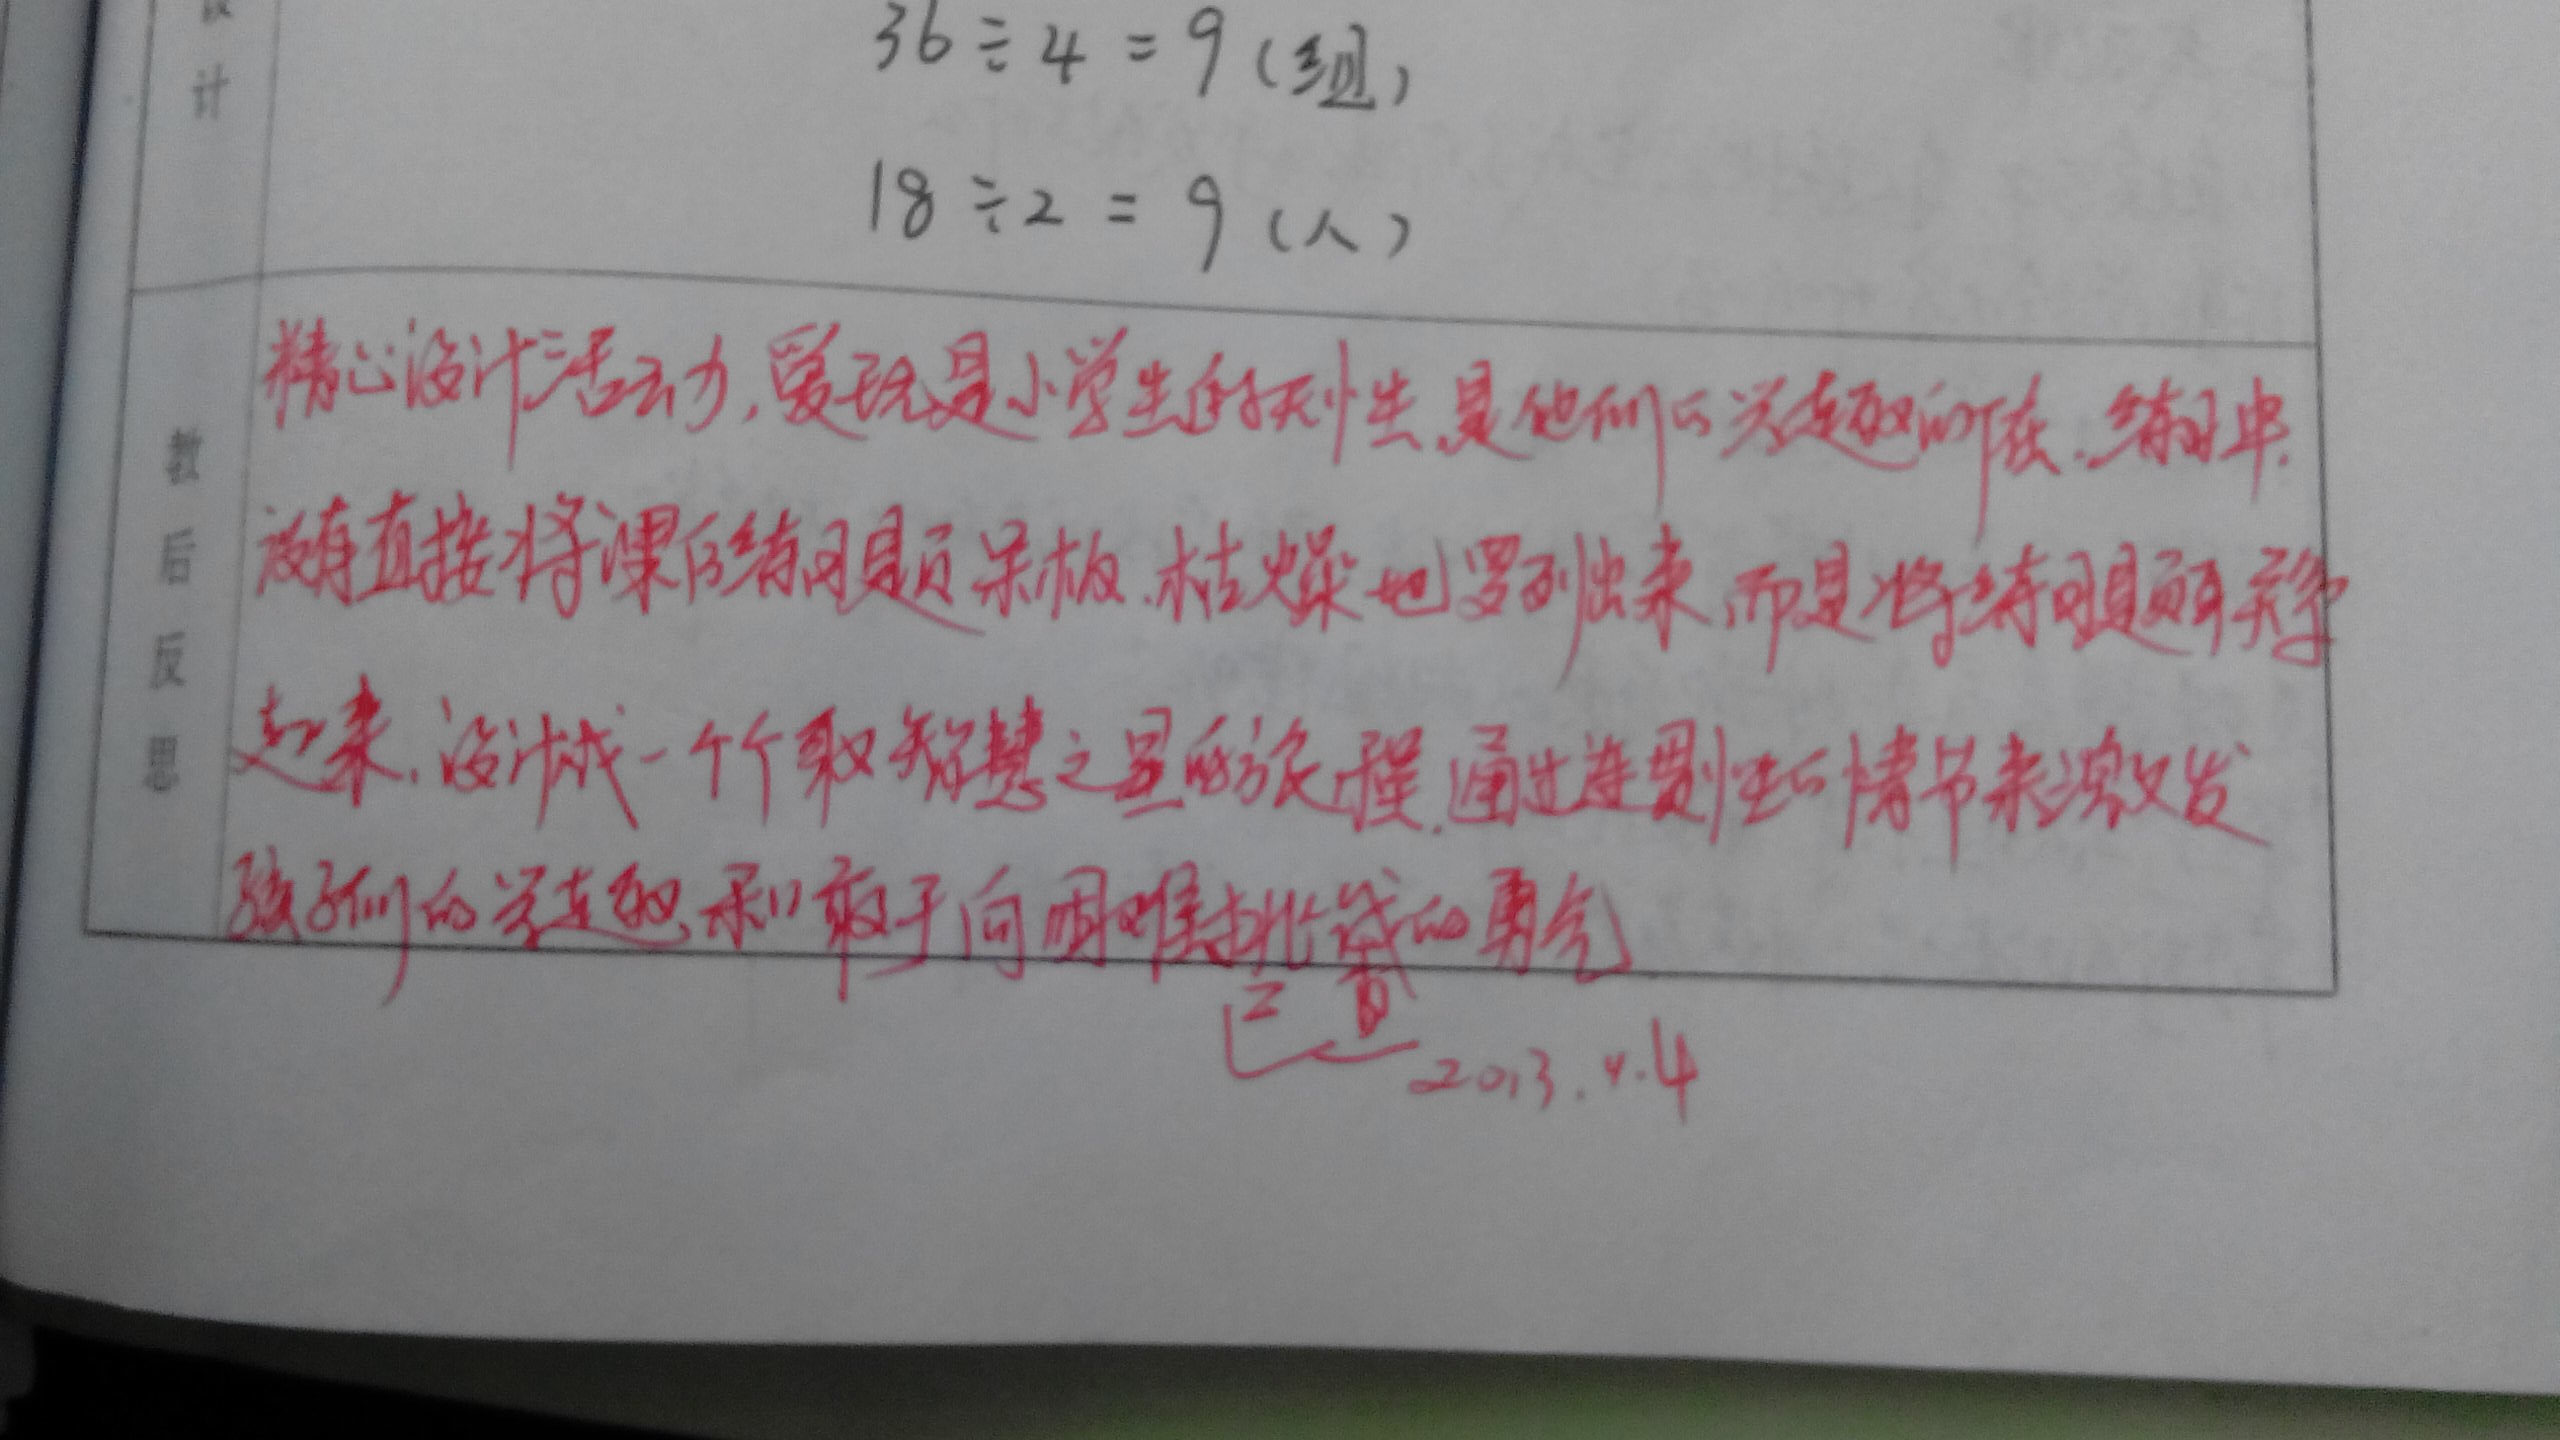 计
36÷4=9(组)
18÷2=9(人)
教后反思
精心设计活动,爱玩是小学生的天性,是他们的兴趣所在.练习中.
没有直接将课后练习题呆板.枯燥地罗列出来,而是将练习题
起来.设计成一个个取智慧之星的旅程.通过连贯性的情节来激发
孩子们的兴趣,和敢于向困难挑战的勇气
已
2013.4.4